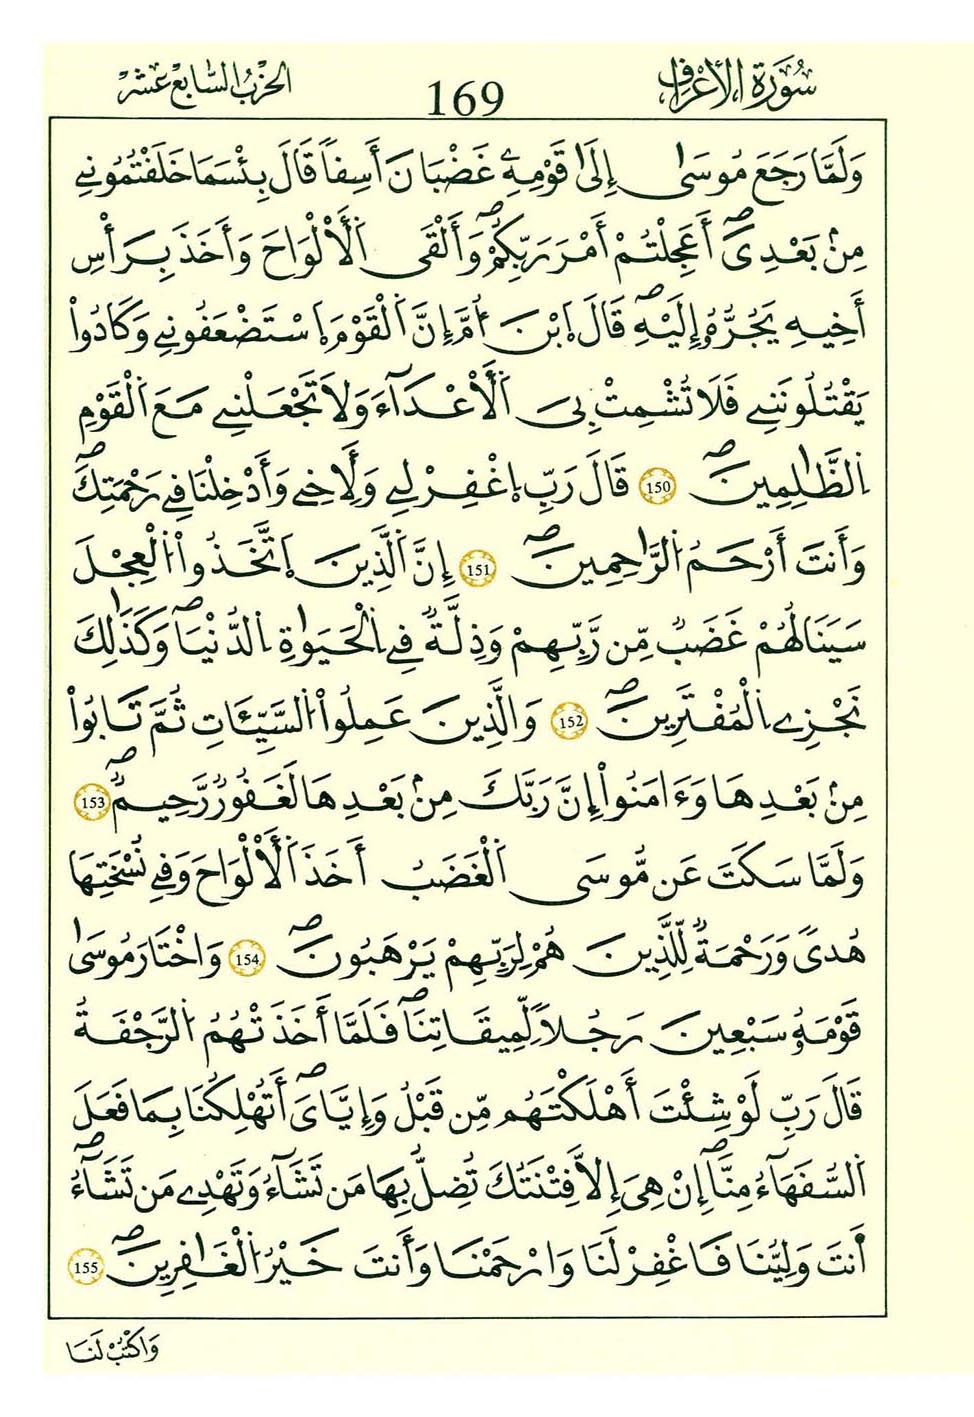 سُورَةُ الْأَعْرَافِ
169
الحِزْبُ السَّابِعَ عَشَرَ
وَلَمَّا رَجَعَ مُوسَىٰ إِلَىٰ قَوْمِهِۦ غَضْبَٰنَ أَسِفاً قَالَ بِئْسَمَا خَلَفْتُمُونِے
مِنۢ بَعْدِىَ أَعَجِلْتُمْ أَمْرَ رَبِّكُمْ وَأَلْقَى اَ۬لْأَلْوَاحَ وَأَخَذَ بِرَأْسِ
أَخِيهِ يَجُرُّهُۥ إِلَيْهِ قَالَ اَ۪بْنَ أُمَّ إِنَّ اَ۬لْقَوْمَ اَ۪سْتَضْعَفُونِے وَكَادُواْ
يَقْتُلُونَنِے فَلَا تُشْمِتْ بِىَ اَ۬لْأَعْدَآءَ وَلَا تَجْعَلْنِے مَعَ اَ۬لْقَوْمِ
اِ۬لظَّٰلِمِينَ 150 قَالَ رَبِّ اِ۪غْفِرْ لِے وَلِأَخِے وَأَدْخِلْنَا فِے رَحْمَتِكَ
وَأَنتَ أَرْحَمُ اُ۬لرَّٰحِمِينَ 151 إِنَّ اَ۬لذِينَ اَ۪تَّخَذُواْ اُ۬لْعِجْلَ
سَيَنَالُهُمْ غَضَبٌ مِّن رَّبِّهِمْ وَذِلَّةٌ فِے اِ۬لْحَيَوٰةِ اِ۬لدُّنْيَا وَكَذَٰلِكَ
نَجْزِے اِ۬لْمُفْتَرِينَ 152 وَالَّذِينَ عَمِلُواْ اُ۬لسَّيِّـَٔاتِ ثُمَّ تَابُواْ
مِنۢ بَعْدِهَا وَءَامَنُواْ إِنَّ رَبَّكَ مِنۢ بَعْدِهَا لَغَفُورٌ رَّحِيمٌ 153
وَلَمَّا سَكَتَ عَن مُّوسَى اَ۬لْغَضَبُ أَخَذَ اَ۬لْأَلْوَاحَ وَفِے نُسْخَتِهَا
هُدىً وَرَحْمَةٌ لِّلَّذِينَ هُمْ لِرَبِّهِمْ يَرْهَبُونَ 154 وَاخْتَارَ مُوسَىٰ
قَوْمَهُۥ سَبْعِينَ رَجُلاً لِّمِيقَٰتِنَا فَلَمَّا أَخَذَتْهُمُ اُ۬لرَّجْفَةُ
قَالَ رَبِّ لَوْ شِئْتَ أَهْلَكْتَهُم مِّن قَبْلُ وَإِيَّٰىَ أَتُهْلِكُنَا بِمَا فَعَلَ
اَ۬لسُّفَهَآءُ مِنَّا إِنْ هِىَ إِلَّا فِتْنَتُكَ تُضِلُّ بِهَا مَن تَشَآءُ وَتَهْدِے مَن تَشَآءُ
أَنتَ وَلِيُّنَا فَاغْفِرْ لَنَا وَارْحَمْنَا وَأَنتَ خَيْرُ اُ۬لْغَٰفِرِينَ 155
وَاكْتُبْ لَنَا